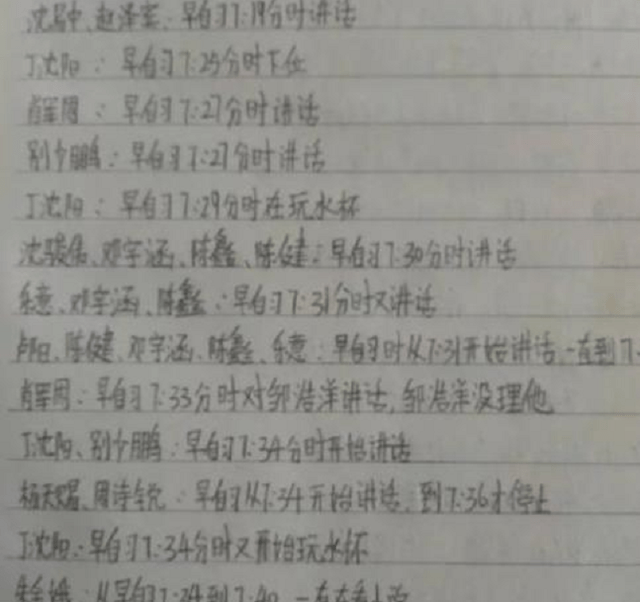 沈易中、赵泽宏：早自习7:19分时讲话
丁沈阳：早自习7:25分时下位
肖军周：早自习7:27分时讲话
别少鹏：早自习7:27分时讲话
丁沈阳：早自习7:29分时在玩水杯
沈骏伟、邓宇涵、陈鑫、陈健：早自习7:30分时讲话
乐意、邓宇涵、陈鑫：早自习7:31分时又讲话
卢阳、陈健、邓宇涵、陈鑫、乐意：早自习时从7:31开始讲话，一直到7
肖军周：早自习7:33分时对邹浩洋讲话，邹浩洋没理他
丁沈阳、别少鹏：早自习7:34分时开始讲话
杨天赐、周诗锐：早自习从7:34开始讲话，到7:36才停止
丁沈阳：早自习7:34分时又开始玩水杯
从早自习7:24到7:40，一直在看小说